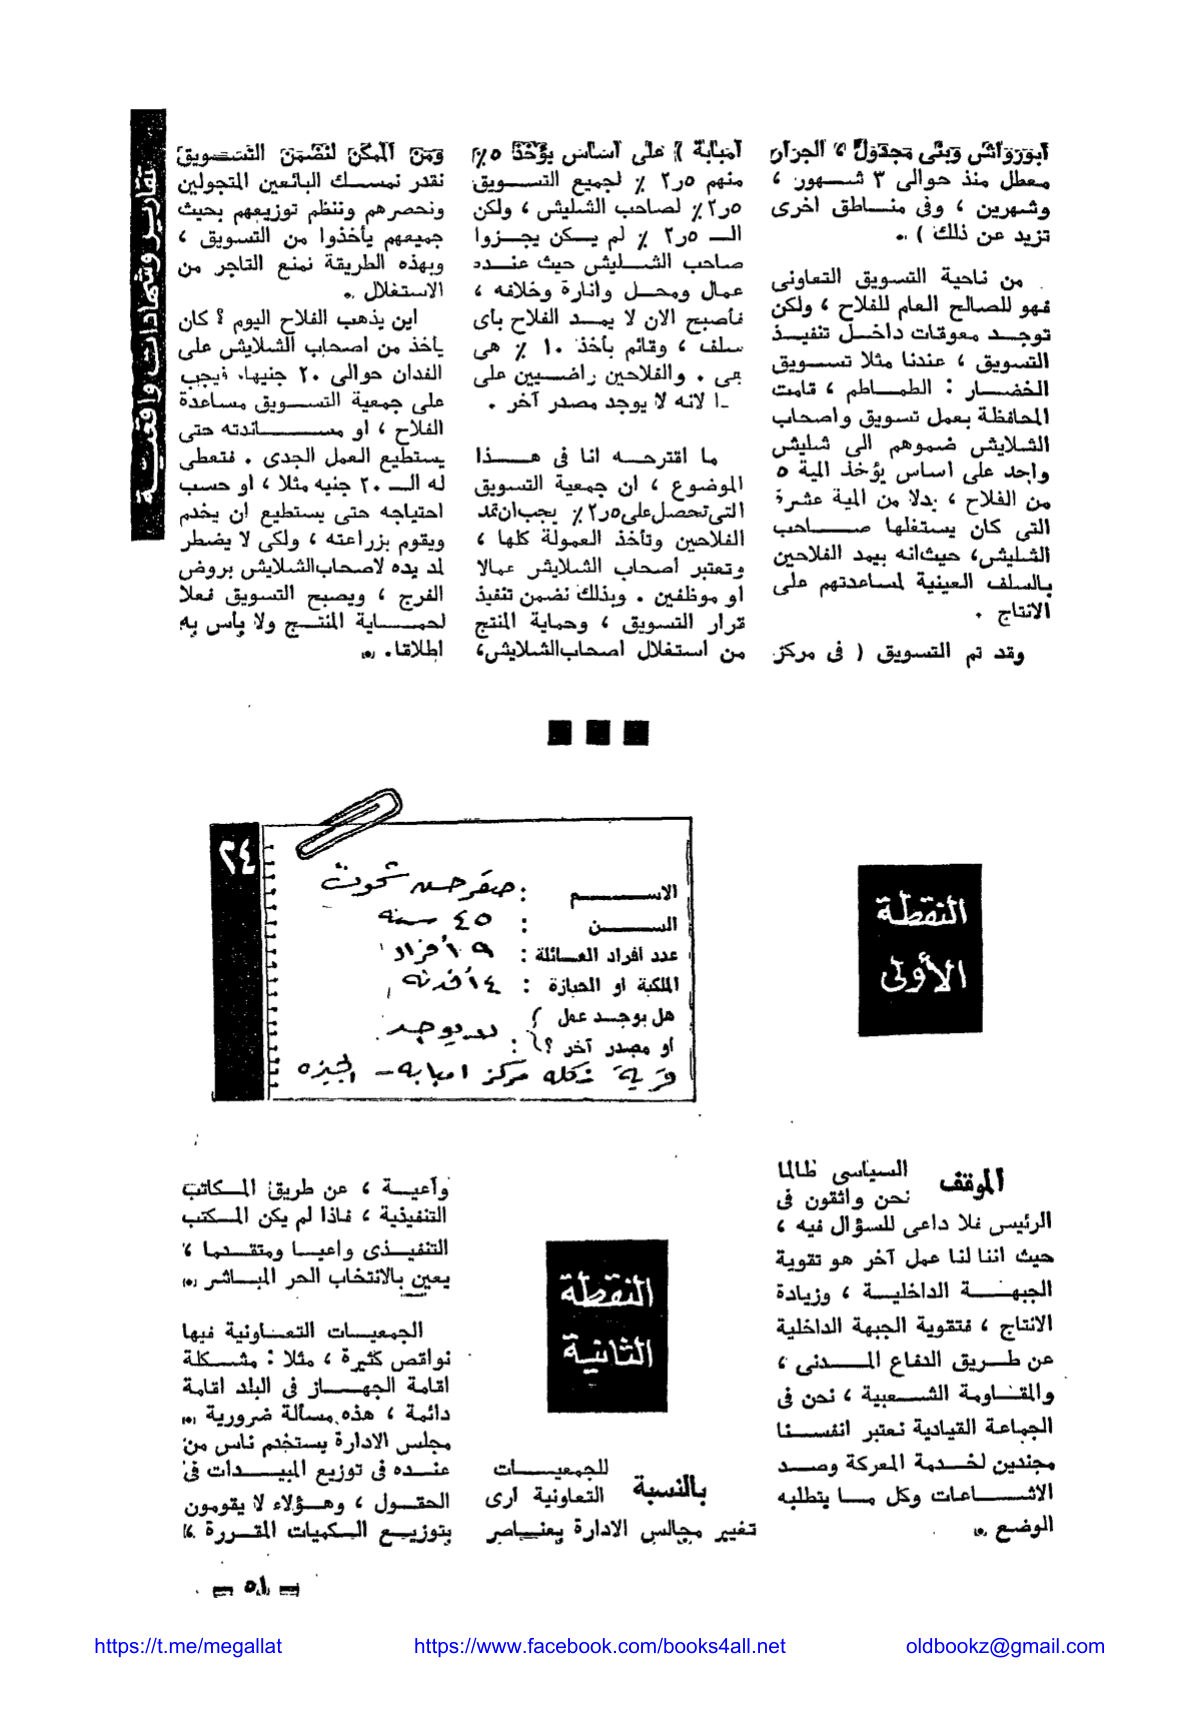 تقارير وشهادات واقعية
أبورواش وبنى مجدول ، الجرار
معطل منذ حوالى ٣ شهور ،
وشهرين ، وفى مناطق اخرى
تزيد عن ذلك ) .
من ناحية التسويق التعاونى
فهو للصالح العام للفلاح ، ولكن
توجد معوقات داخل تنفيذ
التسويق ، عندنا مثلا تسويق
الخضار : الطماطم ، قامت
المحافظة بعمل تسويق واصحاب
الشلايش ضموهم الى شليش
واحد على اساس يؤخذ المية ٥
من الفلاح ، بدلا من المية عشرة
التى كان يستغلها صاحب
الشليش، حيث انه يمد الفلاحين
بالسلف العينية لمساعدتهم على
الانتاج .
وقد تم التسويق ( فى مركز
أمبابة ) على أساس يؤخذ ٥٪
منهم ٢٫٥ ٪ لجميع التسويق
٢٫٥٪ لصاحب الشليش ، ولكن
الـ ٢٫٥ ٪ لم يكن يجزوا
صاحب الشليش حيث عنده
عمال ومحل وانارة وخلافه ،
فأصبح الان لا يمد الفلاح باى
سلف ، وقائم بأخذ ١٠ ٪ هى
هى . والفلاحين راضيين على
ـا لانه لا يوجد مصدر آخر .
ما اقترحه انا فى هذا
الموضوع ، ان جمعية التسويق
التى تحصل على ٢٫٥ ٪ يجب ان تمد
الفلاحين وتأخذ العمولة كلها ،
وتعتبر اصحاب الشلايش عمالا
او موظفين . وبذلك نضمن تنفيذ
قرار التسويق ، وحماية المنتج
من استغلال اصحاب الشلايش،
ومن الممكن لنضمن التسويق
نقدر نمسك البائعين المتجولين
ونحصرهم وننظم توزيعهم بحيث
جميعهم يأخذوا من التسويق ،
وبهذه الطريقة نمنع التاجر من
الاستغلال .
اين يذهب الفلاح اليوم ؟ كان
يأخذ من اصحاب الشلايش على
الفدان حوالى ٢٠ جنيها، فيجب
على جمعية التسويق مساعدة
الفلاح ، او مساندته حتى
يستطيع العمل الجدى . فتعطى
له الـ ٢٠ جنيه مثلا ، او حسب
احتياجه حتى يستطيع ان يخدم
ويقوم بزراعته ، ولكى لا يضطر
لمد يده لاصحاب الشلايش بروض
الفرج ، ويصبح التسويق فعلا
لحماية المنتج ولا بأس به
اطلاقا .
٢٤
الاسم : صقر حسن
السن : ٤٥ سنه
عدد أفراد العائلة : ٩ أفراد
الملكية او الحيازة : ٤ أفدنه
هل يوجد عمل
او مصدر آخر ؟ : لا يوجد
قرية نكله مركز امبابه - الجيزه
النقطة
الأولى
الموقف السياسى طالما
نحن واثقون فى
الرئيس فلا داعى للسؤال فيه ،
حيث اننا لنا عمل آخر هو تقوية
الجبهة الداخلية ، وزيادة
الانتاج ، فتقوية الجبهة الداخلية
عن طريق الدفاع المدنى ،
والمقاومة الشعبية ، نحن فى
الجماعة القيادية نعتبر انفسنا
مجندين لخدمة المعركة وصد
الاشاعات وكل ما يتطلبه
الوضع .
النقطة
الثانية
بالنسبة للجمعيات
التعاونية ارى
تغيير مجالس الادارة بعناصر
واعية ، عن طريق المكاتب
التنفيذية ، فاذا لم يكن المكتب
التنفيذى واعيا ومتقدما ،
يعين بالانتخاب الحر المباشر .
الجمعيات التعاونية فيها
نواقص كثيرة ، مثلا : مشكلة
اقامة الجهاز فى البلد اقامة
دائمة ، هذه مسألة ضرورية .
مجلس الادارة يستخدم ناس من
عنده فى توزيع المبيدات فى
الحقول ، وهؤلاء لا يقومون
بتوزيع الكميات المقررة ،
— ٥٨ —
https://t.me/megallat https://www.facebook.com/books4all.net oldbookz@gmail.com